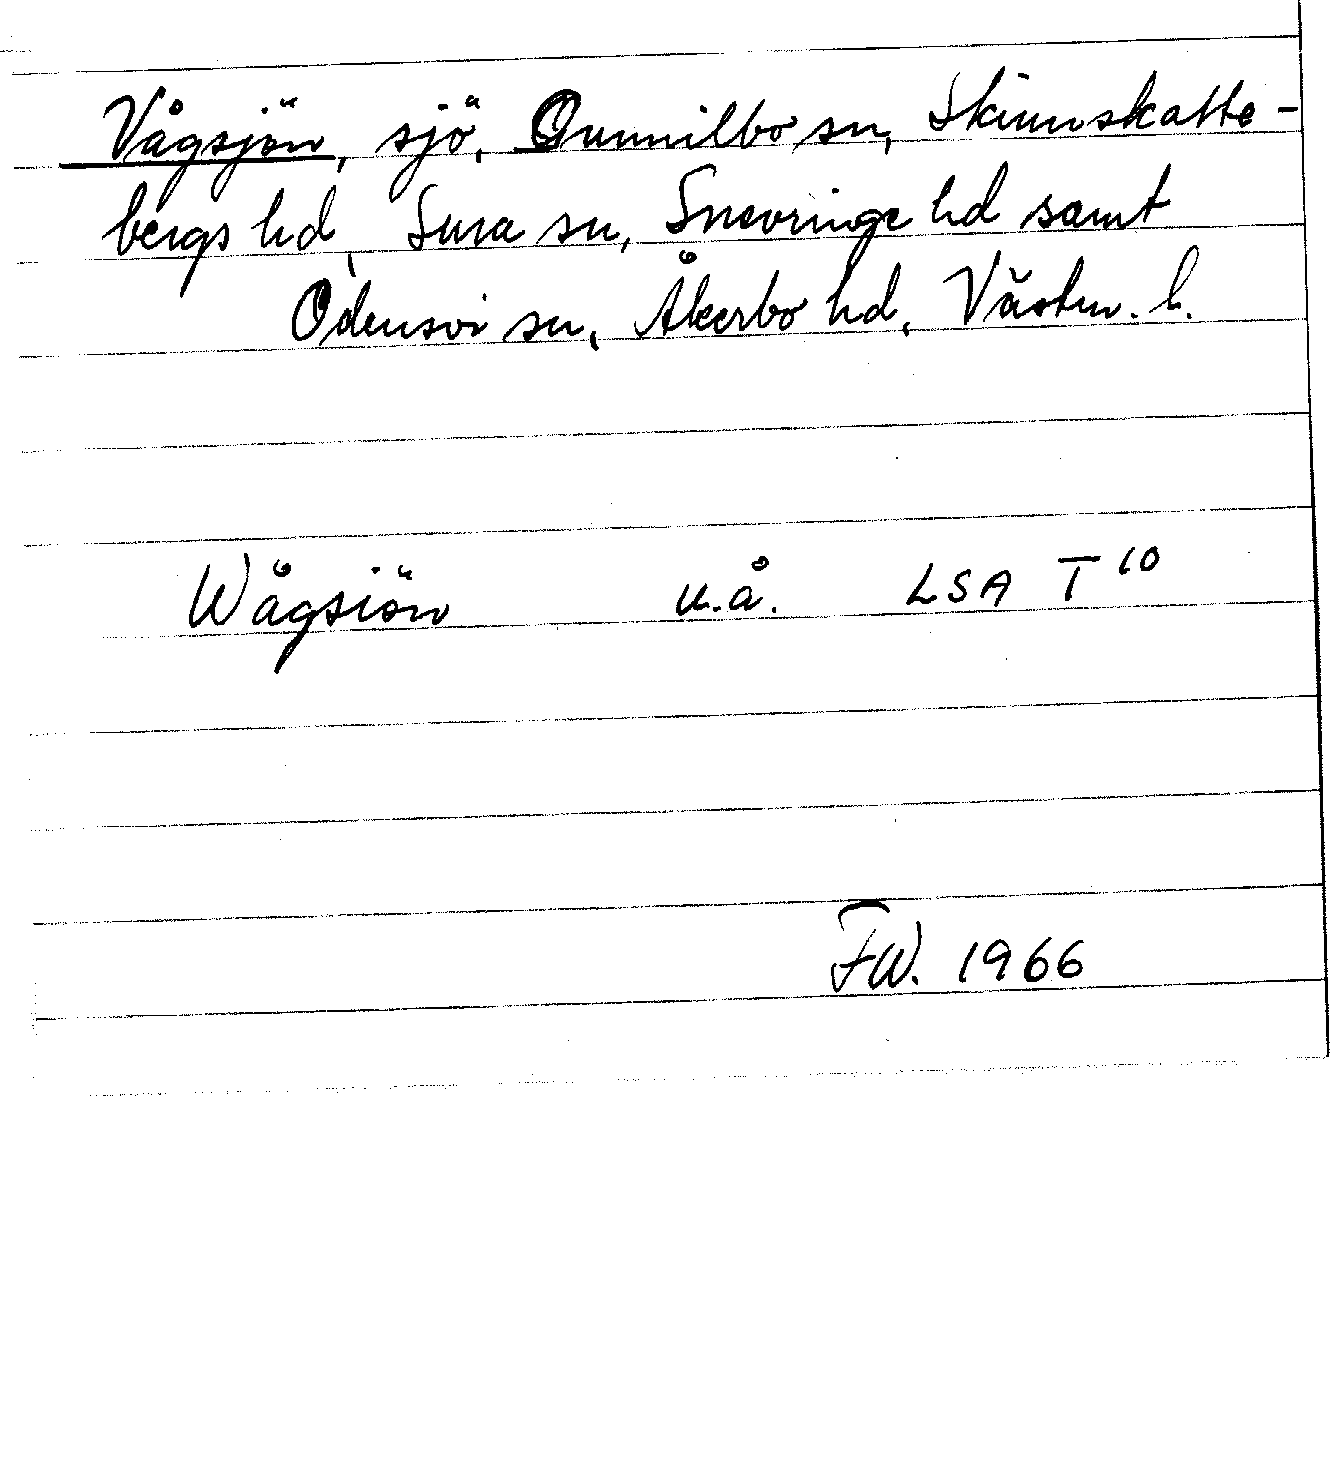 Vågsjön, sjö, Gunnilbo sn, Skinnskatte-
bergs hd, Sura sn, Snevringe hd samt
Odensvi sn, Åkerbo hd, Västm. l.
Wågsiön u.å. LSA T 10
FW. 1966